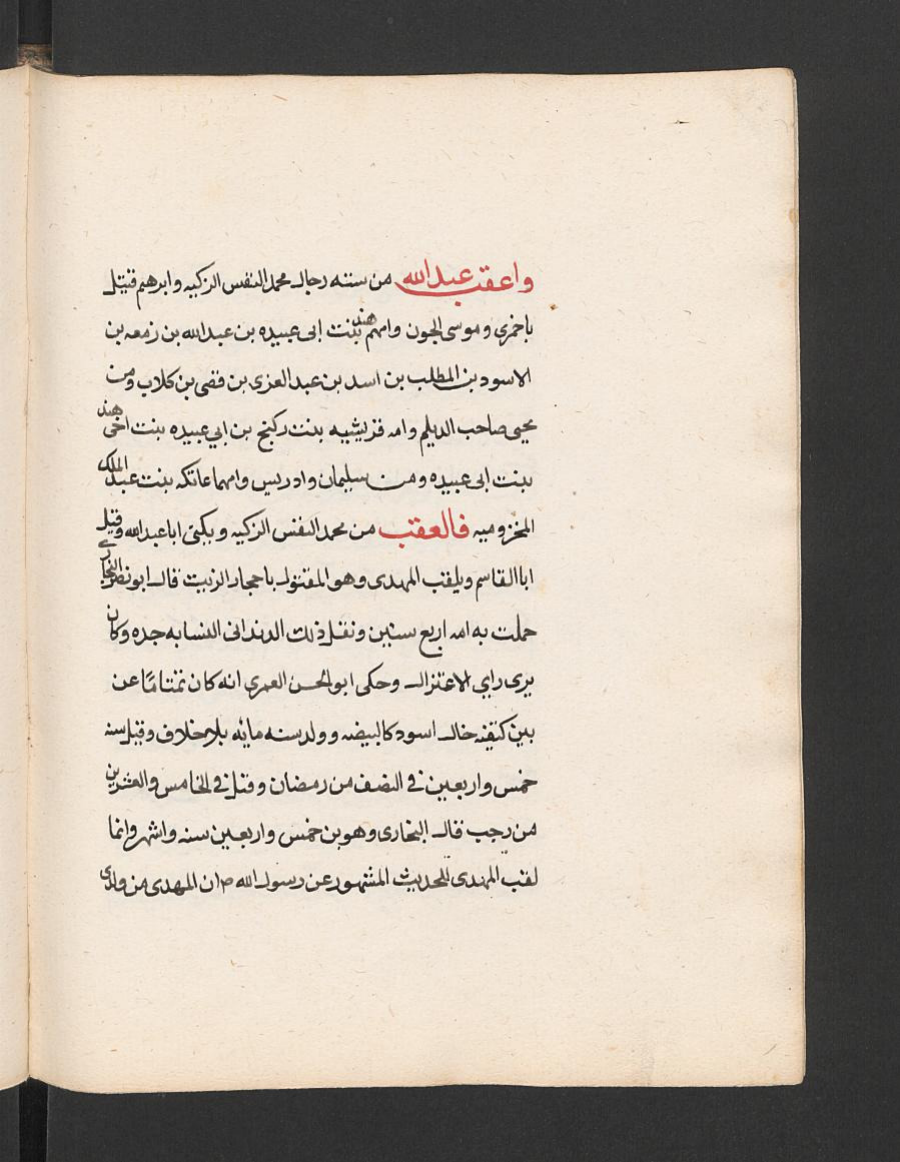 واعقب عبدالله من سته رجال محمد النفس الزكيه وابرهيم قتيل
باخمرى وموسى الجون وامهم هند بنت ابى عبيده بن عبدالله بن زمعه بن
الاسود بن المطلب بن اسد بن عبد العزى بن قصى بن كلاب ومن
يحيى صاحب الديلم وامه قريشيه بنت ركيح بن ابي عبيده بنت اخى هند
بنت ابى عبيده ومن سليمان وادريس وامهما عاتكه بنت عبد الملك
المخزوميه فالعقب من محمد النفس الزكيه ويكنى ابا عبدالله وقيل
ابا القاسم ويلقب المهدى وهو المقتول باحجار الزيت قال ابو نصر البخارى
حملت به امه اربع سنين ونقل ذلك الدندانى النسابه جده وكان
يرى راي الاعتزال وحكى ابو الحسن العمرى انه كان تمتاما عن
بين كتفيه خال اسود كالبيضه وولد سنه مايه بلا خلاف وقتل سنه
خمس واربعين فى النصف من رمضان وقتل فى الخامس والعشرين
من رجب قال البخارى وهو بن خمس واربعين سنه واشهر وانما
لقب المهدى للحديث المشهور عن رسول الله ص ان المهدى من ولدى